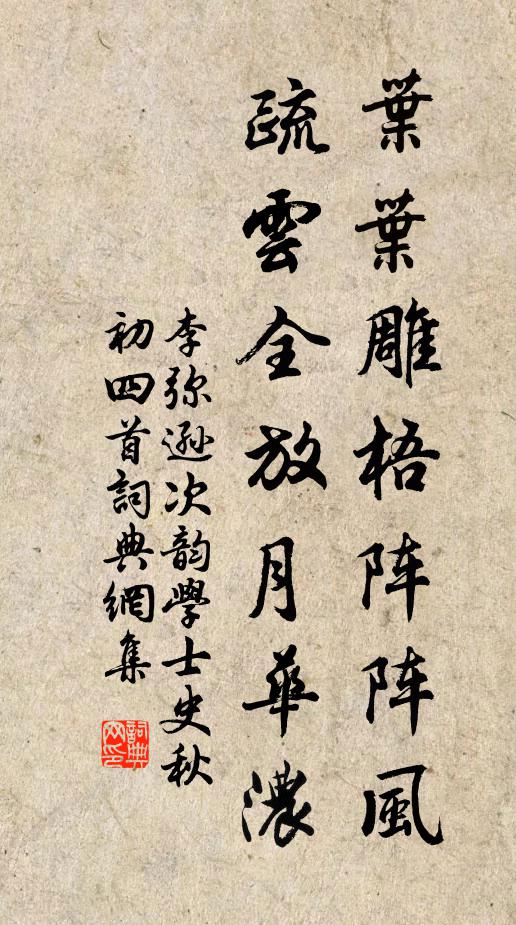 葉葉雕梧阵阵風
疏雲全放月華濃
李弥逊次韵學士史秋
初四首詞典網集
詞典网印